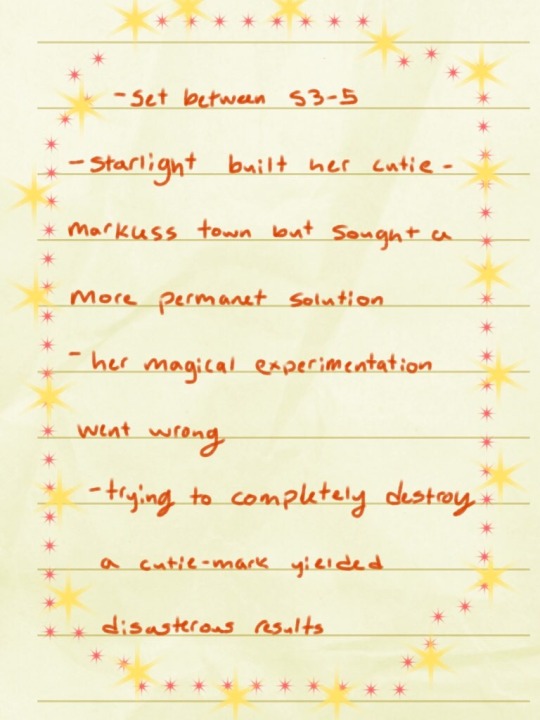 - Set between S3-5
- Starlight built her cutie-
markless town but sought a
more permanet solution
- her magical experimentation
went wrong
- trying to completely destroy
a cutie-mark yielded
disasterous results